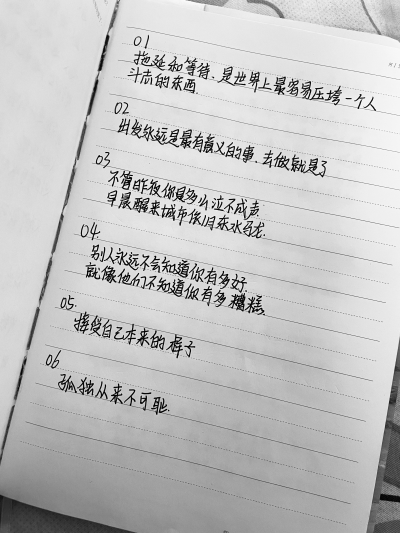 01
拖延和等待,是世界上最容易压垮一个人
斗志的东西.
02
出发永远是最有意义的事.去做就是了
03
不管昨夜你是多么泣不成声.
早晨醒来城市依旧车水马龙.
04.
别人永远不会知道你有多好.
就像他们不知道你有多糟糕.
05.
接受自己本来的样子
06
孤独从来不可耻.